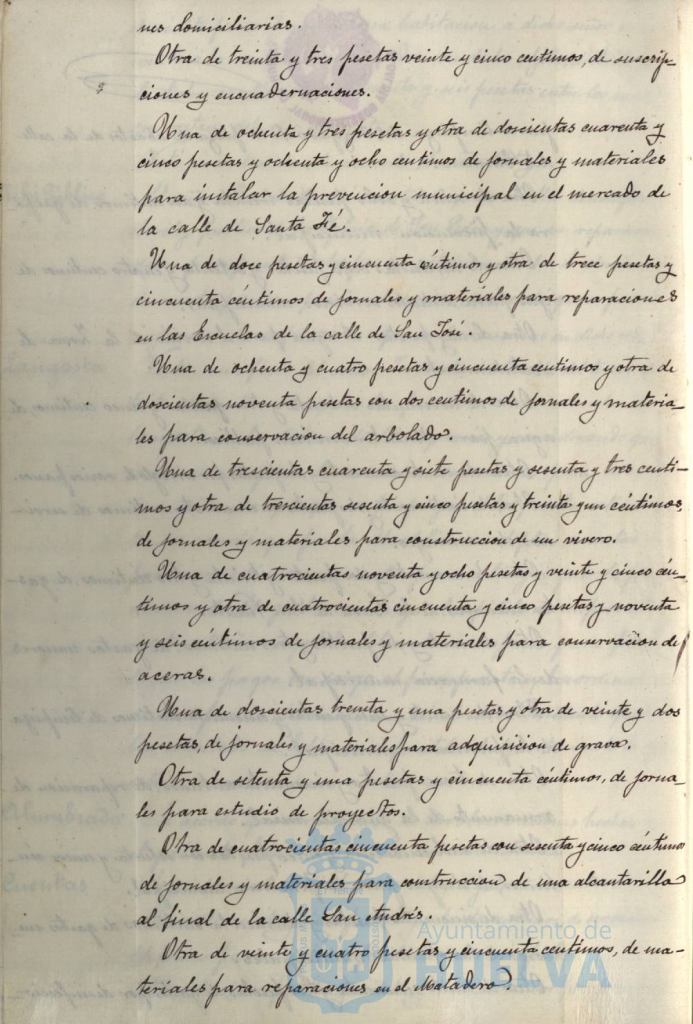 nes domiciliarias.
Otra de treinta y tres pesetas veinte y cinco centimos, de suscrip-
ciones y encuadernaciones.
Una de ochenta y tres pesetas y otra de doscientas cuarenta y
cinco pesetas y ochenta y ocho centimos de jornales y materiales
para instalar la prevencion municipal en el mercado de
la calle de Santa Fé.
Una de doce pesetas y cincuenta céntimos y otra de trece pesetas y
cincuenta céntimos de jornales y materiales para reparaciones
en las Escuelas de la calle de San José.
Una de ochenta y cuatro pesetas y cincuenta centimos y otra de
doscientas noventa pesetas con dos centimos de jornales y materia-
les para conservacion del arbolado.
Una de trescientas cuarenta y siete pesetas y sesenta y tres centi-
mos y otra de trescientas sesenta y cinco pesetas y treinta y un céntimos,
de jornales y materiales para construccion de un vivero.
Una de cuatrocientas noventa y ocho pesetas y veinte y cinco cén-
timos y otra de cuatrocientas cincuenta y cinco pesetas y noventa
y seis céntimos de jornales y materiales para conservacion de
aceras.
Una de doscientas treinta y una pesetas y otra de veinte y dos
pesetas, de jornales y materiales para adquisicion de grava.
Otra de setenta y una pesetas y cincuenta céntimos, de jorna-
les para estudio de proyectos.
Otra de cuatrocientas cincuenta pesetas con sesenta y cinco céntimos
de jornales y materiales para construccion de una alcantarilla
al final de la calle San Andrés.
Otra de veinte y cuatro pesetas y cincuenta centimos, de ma-
teriales para reparaciones en el Matadero.
Ayuntamiento de
HUELVA